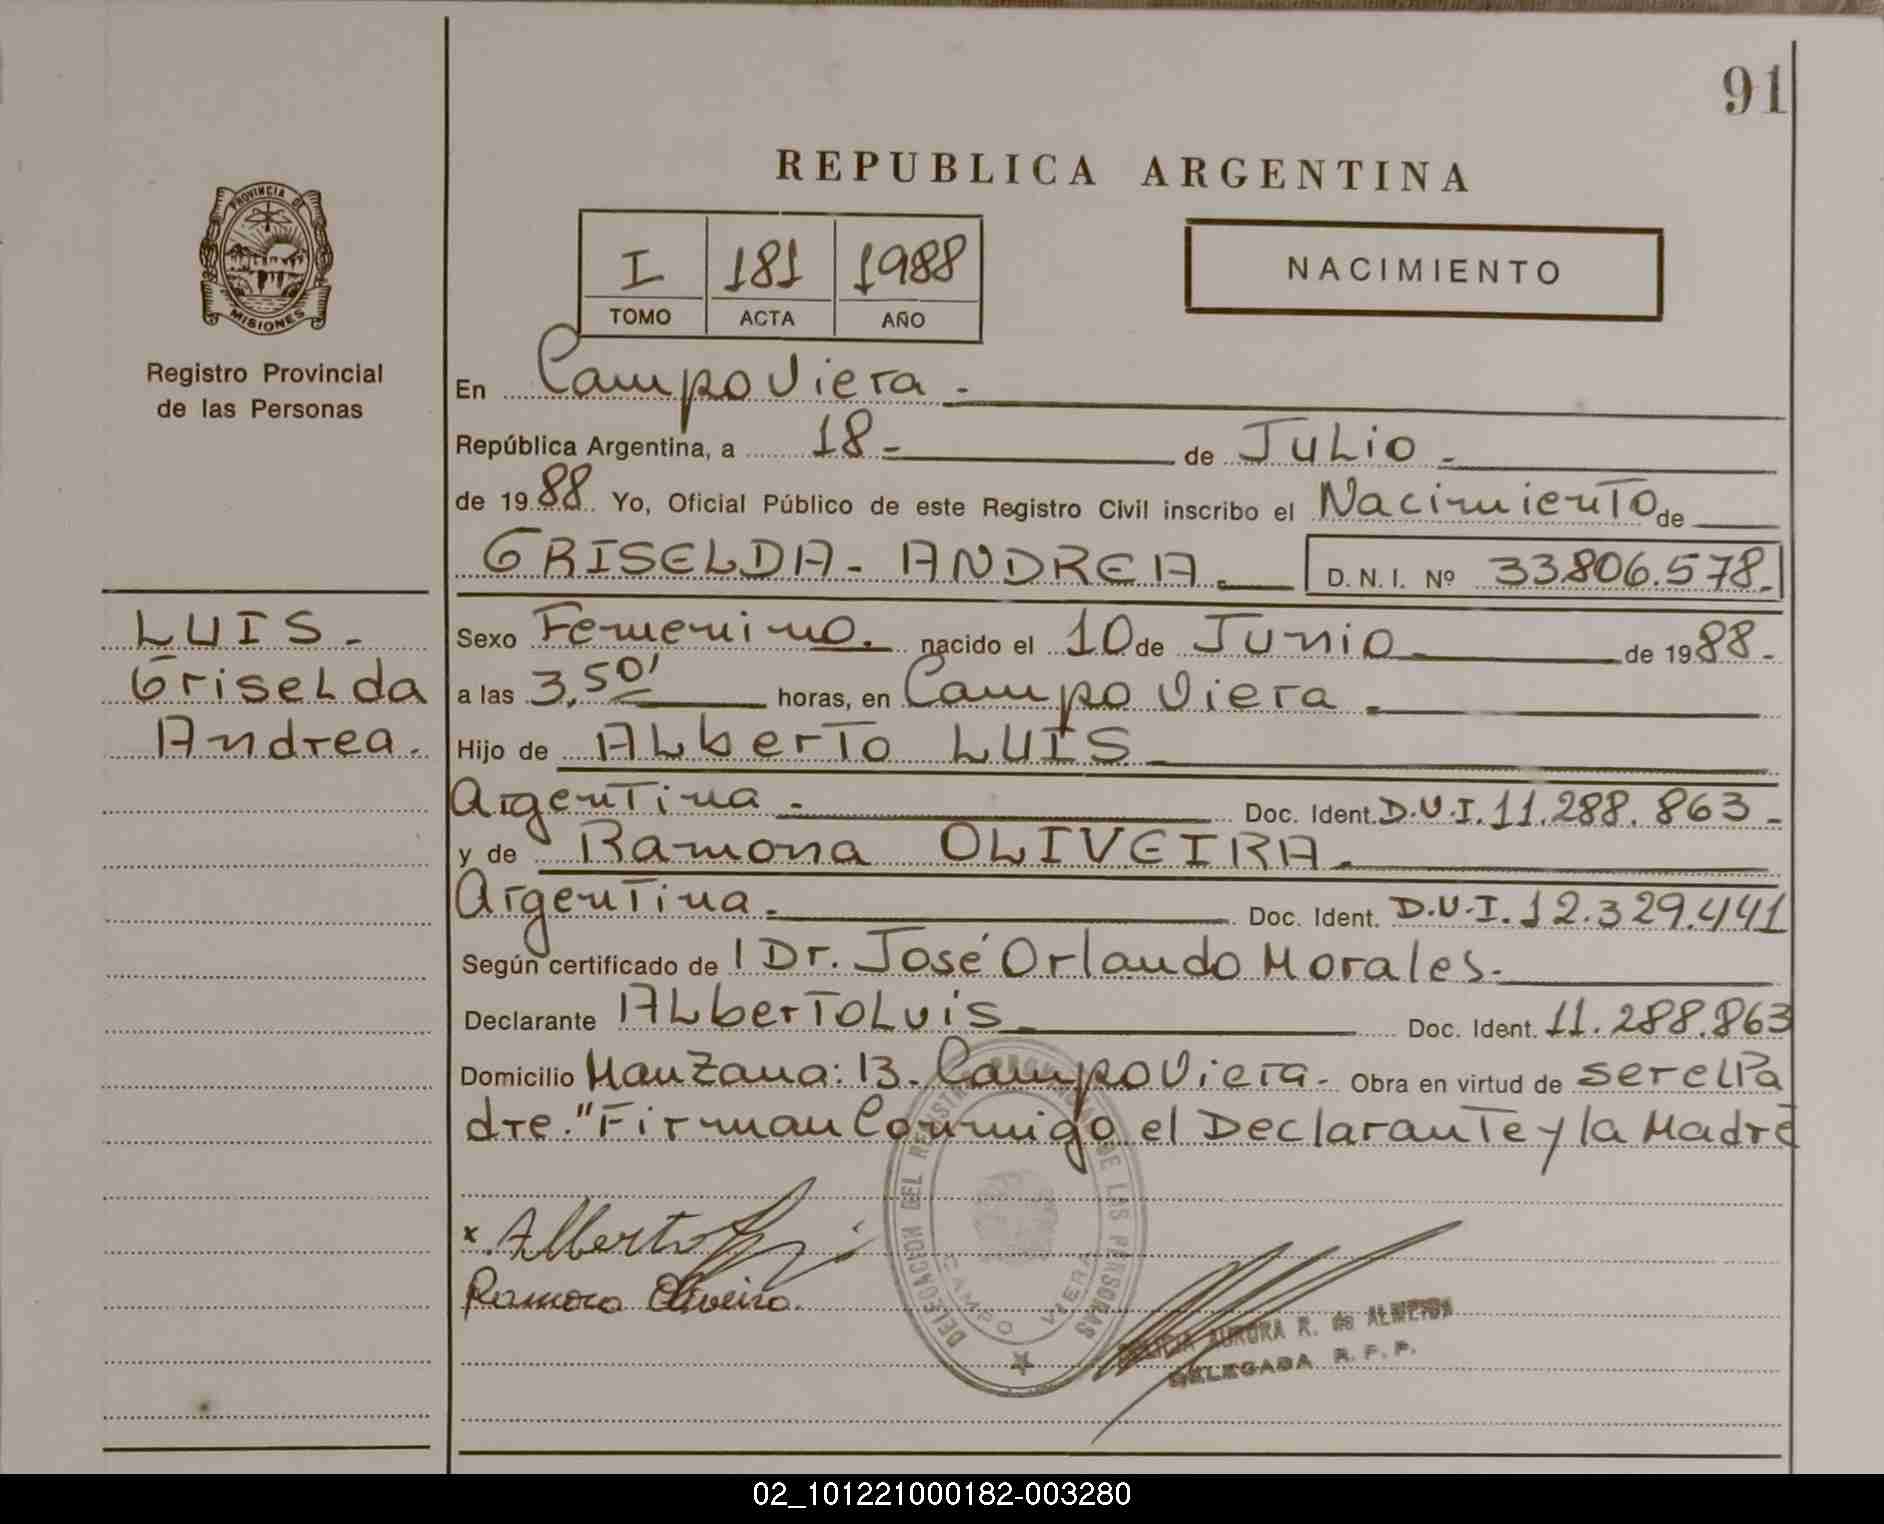 91
REPUBLICA ARGENTINA
PROVINCIA DE
MISIONES
I 181 1988
TOMO ACTA AÑO
NACIMIENTO
Registro Provincial
de las Personas
En Campo Viera -
República Argentina, a 18 - de Julio -
de 1988 Yo, Oficial Público de este Registro Civil inscribo el Nacimiento de
GRISELDA - ANDREA. D. N. I. Nº 33806.578.-
LUIS -
Griselda
Andrea.
Sexo Femenino. nacido el 10 de Junio de 1988.-
a las 3,50' horas, en Campo Viera.
Hijo de Alberto LUIS
Argentina - Doc. Ident. D.N.I. 11.288.863-
y de Ramona OLIVEIRA.
Argentina. Doc. Ident. D.N.I. 12.329.441
Según certificado de l Dr. José Orlando Morales.
Declarante Alberto Luis Doc. Ident. 11.288.863
Domicilio Manzana: 13. Campo Viera - Obra en virtud de ser el Pa
dre. "Firman Conmigo el Declarante y la Madre
x. Alberto
Ramona Oliveira.
DELEGACION DEL REGISTRO DE LAS PERSONAS
CAMPO VIERA
AURORA R. de ALMEIDA
DELEGADA R. P. P.
02_101221000182-003280